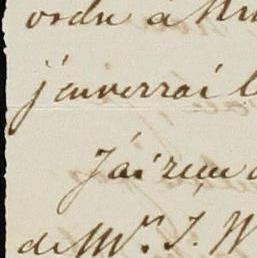 ordre à
j'enverrai
J'ai reçu
de Mr. J. W